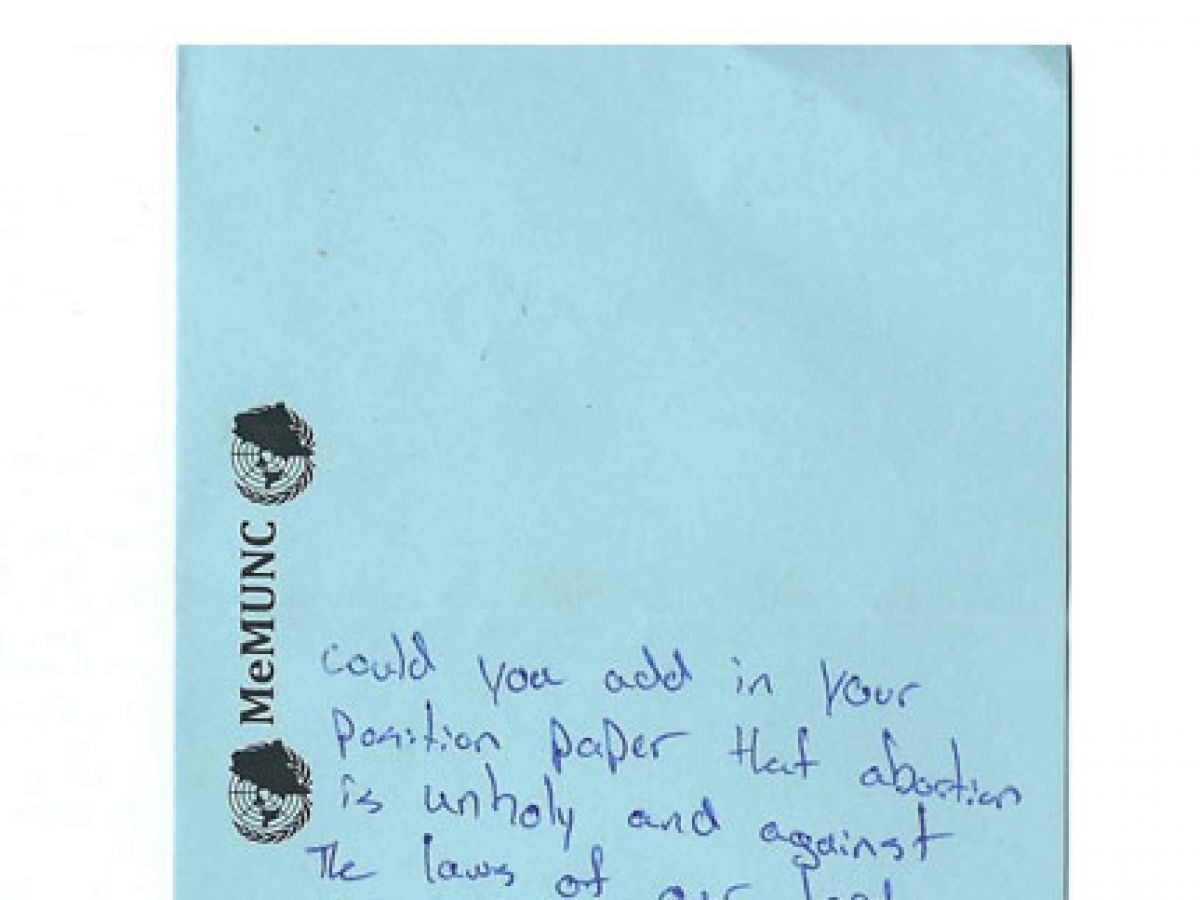 MeMUNC
could you add in your
position paper that abortion
is unholy and against
The laws of our